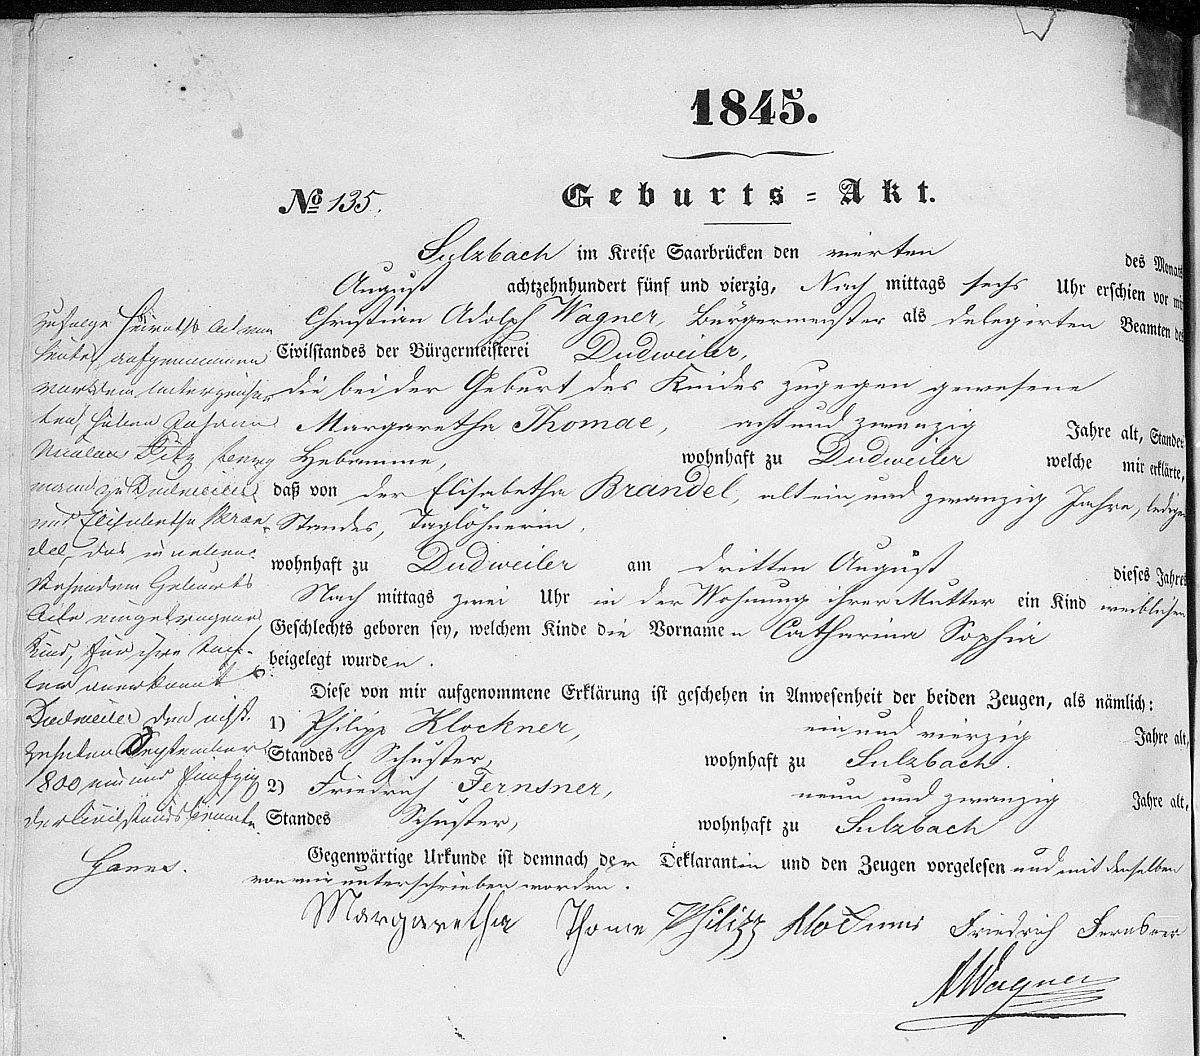 1845.
Geburts-Akt.
No 135.
Sulzbach im Kreise Saarbrücken den vierten des Monats
August achtzehnhundert fünf und vierzig, Nach mittags sechs Uhr erschien vor mir
Christian Adolph Wagner, Bürgermeister als delegirten Beamten des
Civilstandes der Bürgermeisterei Dudweiler,
die bei der Geburt des Kindes zugegen gewesene
Margaretha Thomae, acht und zwanzig Jahre alt, Standes
Hebamme, wohnhaft zu Dudweiler welche mir erklärte,
daß von der Elisabetha Brandel, alt ein und zwanzig Jahre, ledigen
Standes, Taglöhnerin,
wohnhaft zu Dudweiler am dritten August dieses Jahres
Nach mittags zwei Uhr in der Wohnung ihrer Mutter ein Kind weiblichen
Geschlechts geboren sey, welchem Kinde die Vornamen Catharina Sophia
beigelegt wurden.
Diese von mir aufgenommene Erklärung ist geschehen in Anwesenheit der beiden Zeugen, als nämlich:
1) Philipp Klockner, ein und vierzig Jahre alt,
Standes Schuster, wohnhaft zu Sulzbach.
2) Friedrich Fernsner, neun und zwanzig Jahre alt,
Standes Schuster, wohnhaft zu Sulzbach
Gegenwärtige Urkunde ist demnach der Deklarantin und den Zeugen vorgelesen und mit denselben
von mir unterschrieben worden.
Margaretha Thome Philipp Klockner Friedrich Fernsner
AWagner
Zufolge Heiraths Act von
heute, aufgenommen
von dem unterzeichne
ten, haben Johann
Nicolaus Pitz Berg
mann zu Dudweiler
und Elisabetha Bran
del, das in neben
stehendem Geburts
Acte eingetragene
Kind, für ihre Toch-
ter anerkannt
Dudweiler den acht
zehnten September
1800 ein und fünfzig
der Civilstands beamte